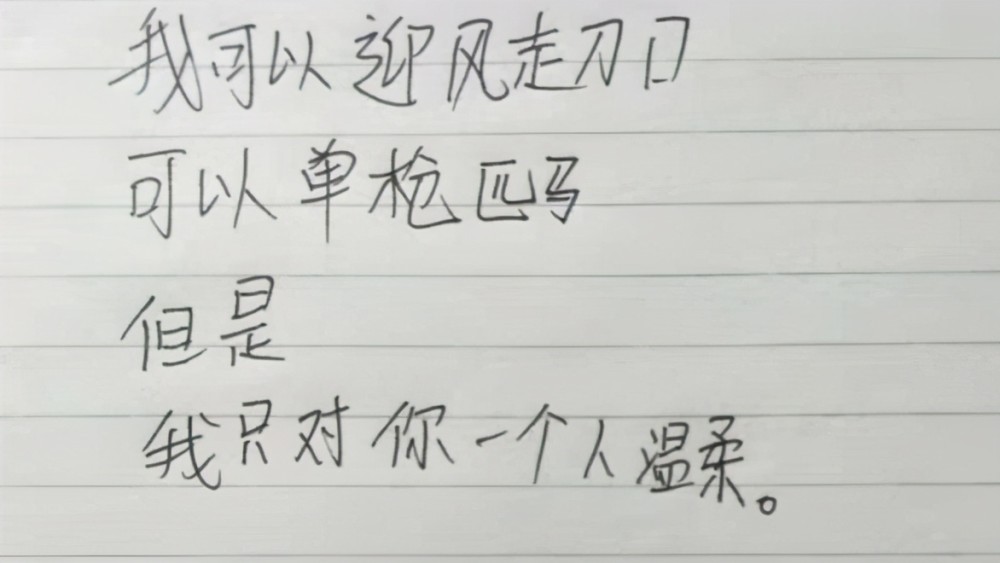 我可以迎风走刀口
可以单枪匹马
但是
我只对你一个人温柔。